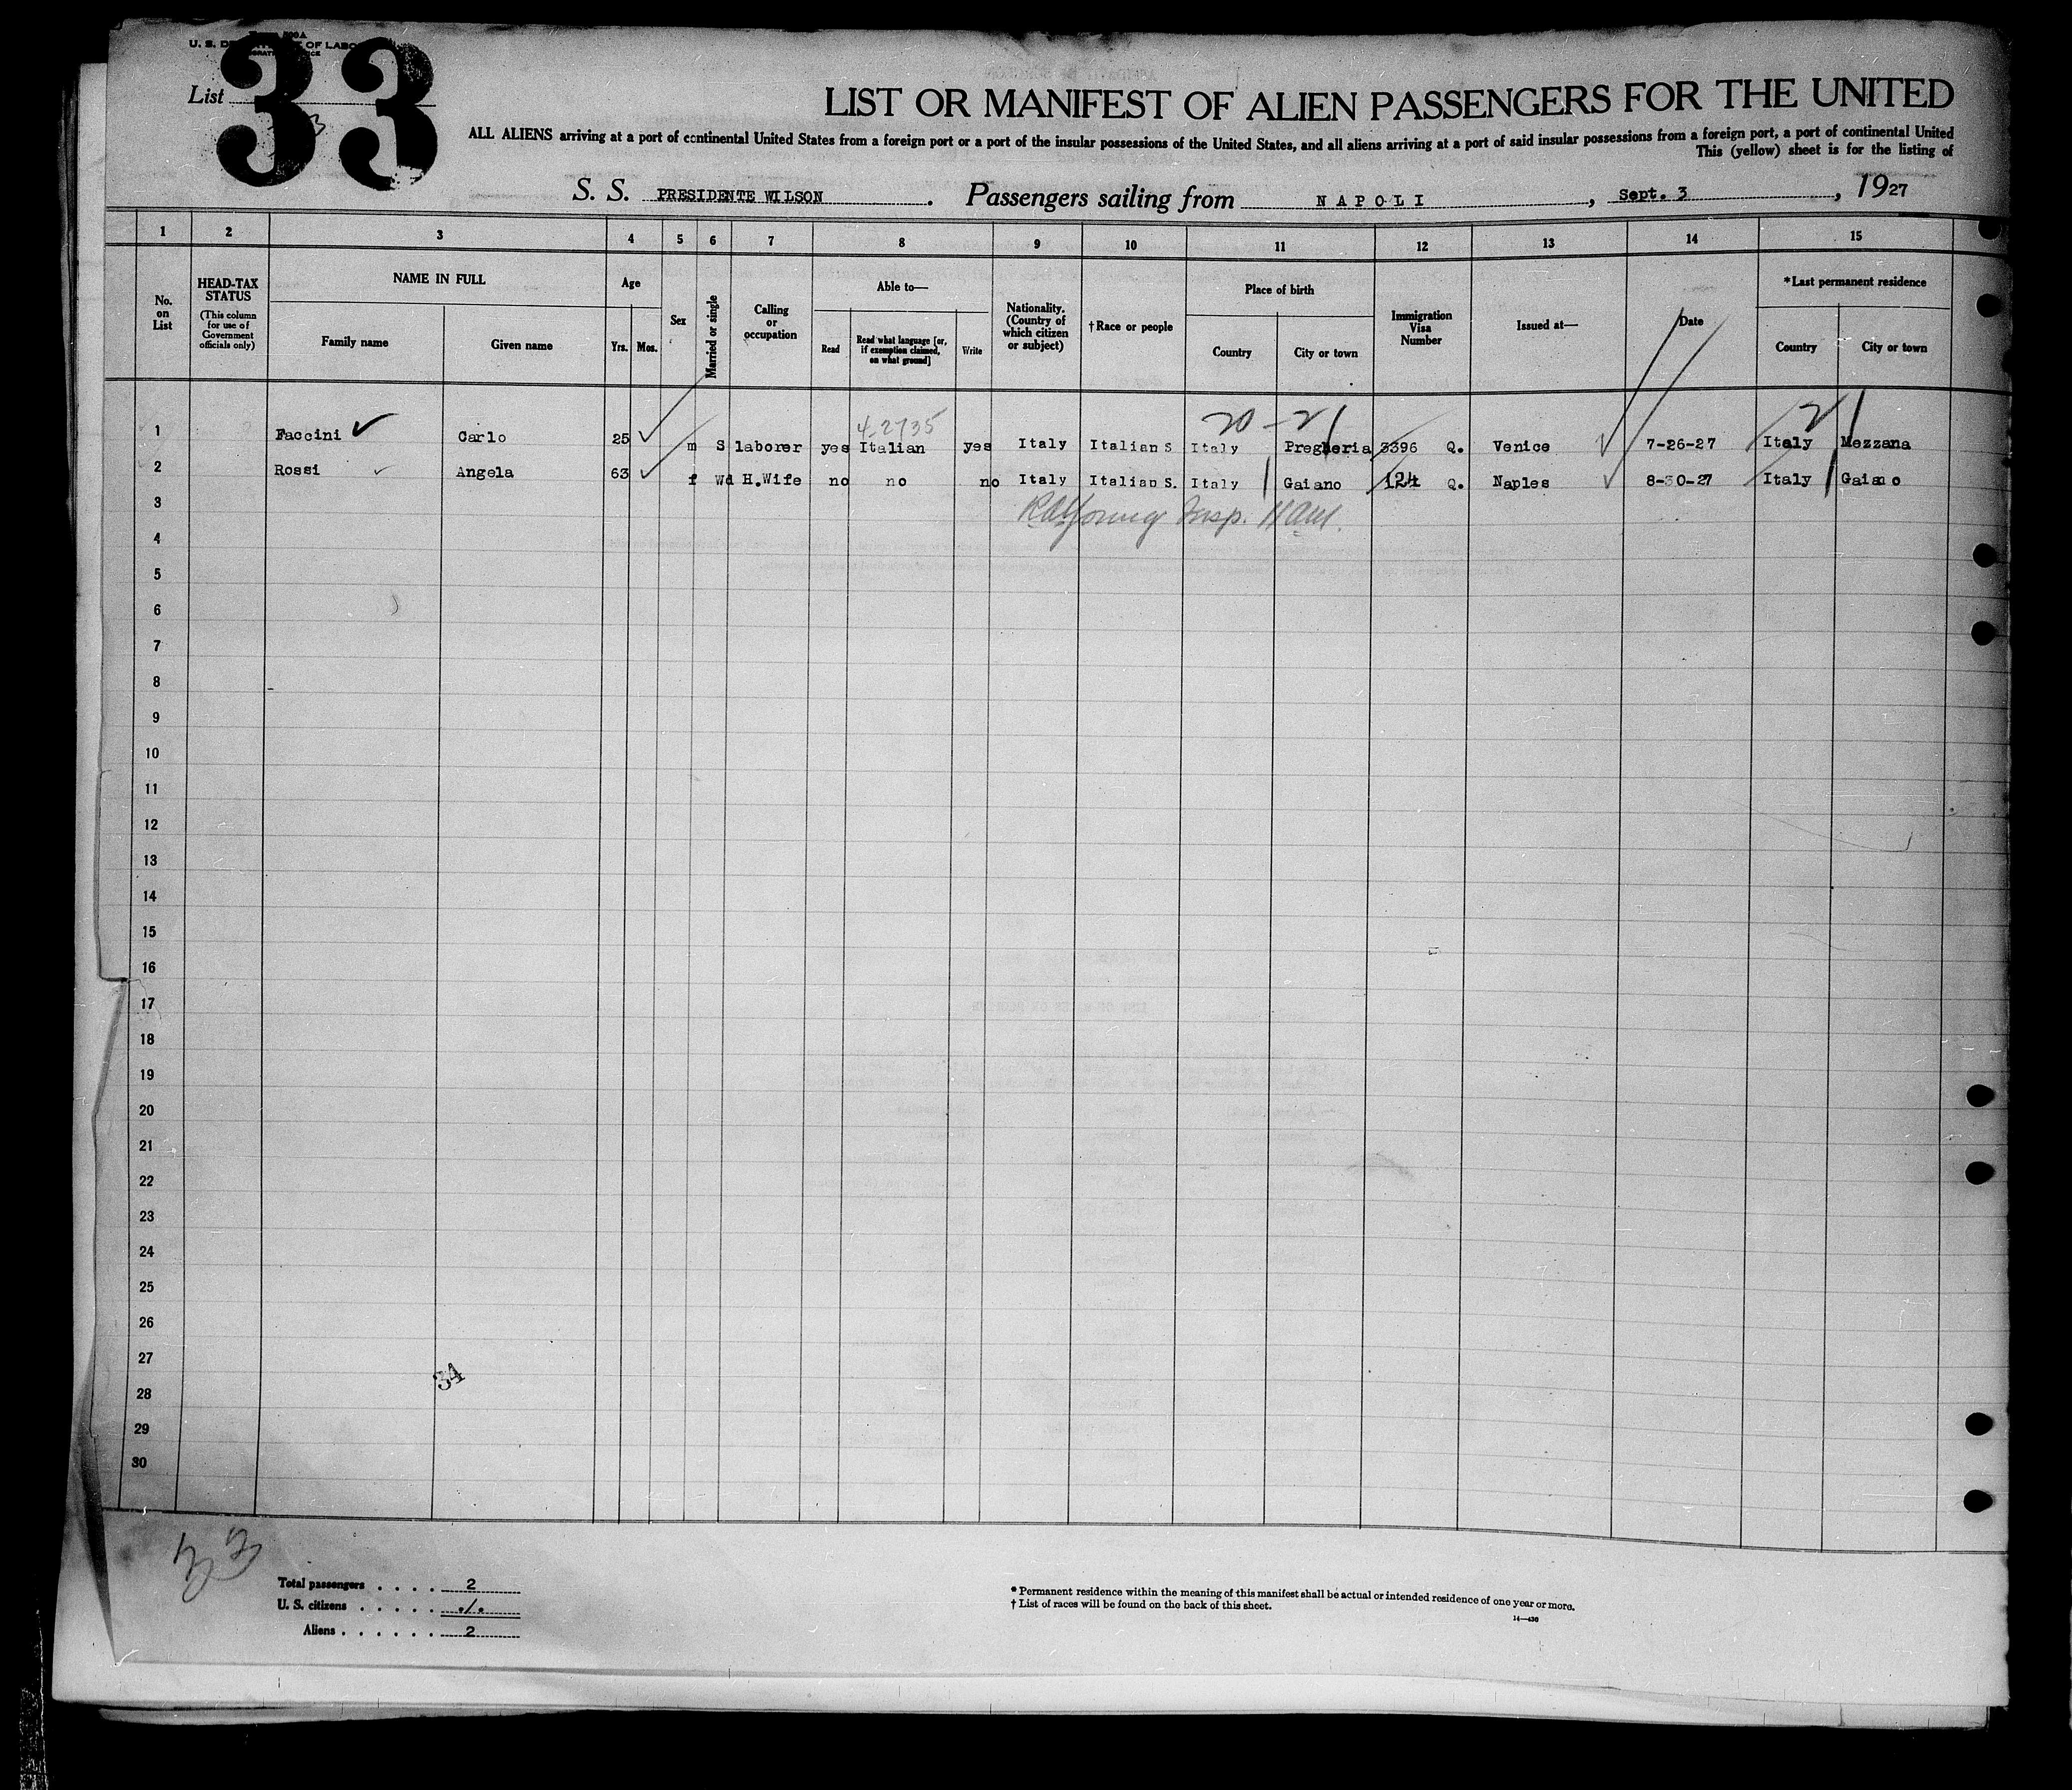 U. S. D OF LABO
33
List
LIST OR MANIFEST OF ALIEN PASSENGERS FOR THE UNITED
ALL ALIENS arriving at a port of continental United States from a foreign port or a port of the insular possessions of the United States, and all aliens arriving at a port of said insular possessions from a foreign port, a port of continental United
This (yellow) sheet is for the listing of
S. S. PRESIDENTE WILSON. Passengers sailing from NAPOLI, Sept. 3, 1927
1 2 3 4 5 6 7 8 9 10 11 12 13 14 15
No. on List
HEAD-TAX STATUS
(This column for use of Government officials only)
NAME IN FULL
Family name Given name
Age
Yrs. Mos.
Sex
Married or single
Calling or occupation
Able to—
Read
Read what language [or, if exemption claimed, on what ground]
Write
Nationality. (Country of which citizen or subject)
†Race or people
Place of birth
Country City or town
Immigration Visa Number
Issued at—
Date
*Last permanent residence
Country City or town
4-2735 20-21 21
1 Faccini Carlo 25 m S laborer yes Italian yes Italy Italian S Italy Pregheria 3396 Q. Venice 7-26-27 Italy Mezzana
2 Rossi Angela 63 f Wd H.Wife no no no Italy Italian S. Italy Gaiano 124 Q. Naples 8-30-27 Italy Gaiano
3
Young Insp.
4
5
6
7
8
9
10
11
12
13
14
15
16
17
18
19
20
21
22
23
24
25
26
27
34
28
29
30
33
Total passengers . . . . 2
U. S. citizens . . . . . ./.
Aliens . . . . . . 2
* Permanent residence within the meaning of this manifest shall be actual or intended residence of one year or more.
† List of races will be found on the back of this sheet.
14—430